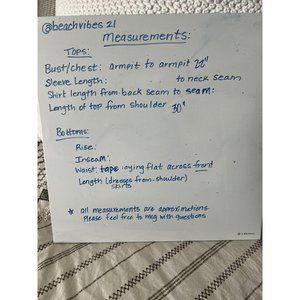 @beachvibes21
Measurements:
Tops:
Bust/chest: armpit to armpit 22"
Sleeve Length: to neck seam
Shirt length from back seam to seam:
Length of top from shoulder 30"
Bottoms:
Rise:
Inseam:
Waist: tape laying flat across front
Length (dresses from shoulder)
skirts
* all measurements are approximations
Please feel free to msg with questions